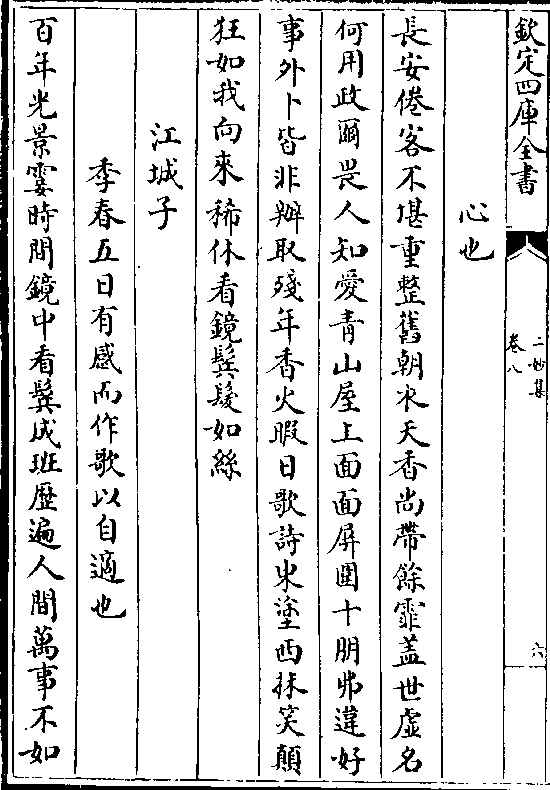 欽定四庫全書
二妙集
卷八
六
心也
長安倦客不堪重整舊朝衣天香尚帶餘霏蓋世虛名
何用政爾畏人知愛青山屋上面面屏圍十朋弗違好
事外卜皆非辦取殘年香火暇日歌詩東塗西抹笑顛
狂如我向來稀休看鏡鬂髮如絲
江城子
季春五日有感而作歌以自適也
百年光景霎時間鏡中看鬂成班歷遍人間萬事不如